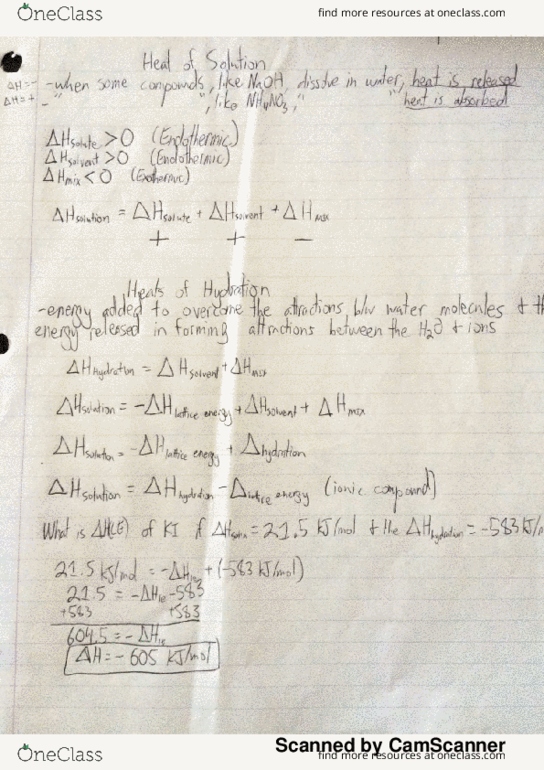 OneClass
find more resources at oneclass.com
Heat of Solution
ΔH=- -when some compounds, like NaOH, dissolve in water, heat is released
ΔH=+ - " ", like NH₄NO₃, " " heat is absorbed
ΔHsolute >0 (Endothermic)
ΔHsolvent >0 (Endothermic)
ΔHmix <0 (Exothermic)
ΔHsolution = ΔHsolute + ΔHsolvent + ΔHmix
+ + -
Heats of Hydration
-energy added to overcome the attractions b/w water molecules + th
energy released in forming attractions between the H₂O + ions
ΔHHydration = ΔHsolvent + ΔHmix
ΔHsolution = -ΔHlattice energy + ΔHsolvent + ΔHmix
ΔHsolution = -ΔHlattice energy + Δhydration
ΔHsolution = ΔHhydration - Δlattice energy (ionic compound)
What is ΔH(LE) of KI if ΔHsoln = 21.5 KJ/mol + the ΔHhydration = -583 KJ/
21.5 KJ/mol = -ΔHle + (-583 KJ/mol)
21.5 = -ΔHle -583
+583 +583
604.5 = -ΔHle
ΔH = - 605 KJ/mol
Scanned by CamScanner
OneClass
find more resources at oneclass.com